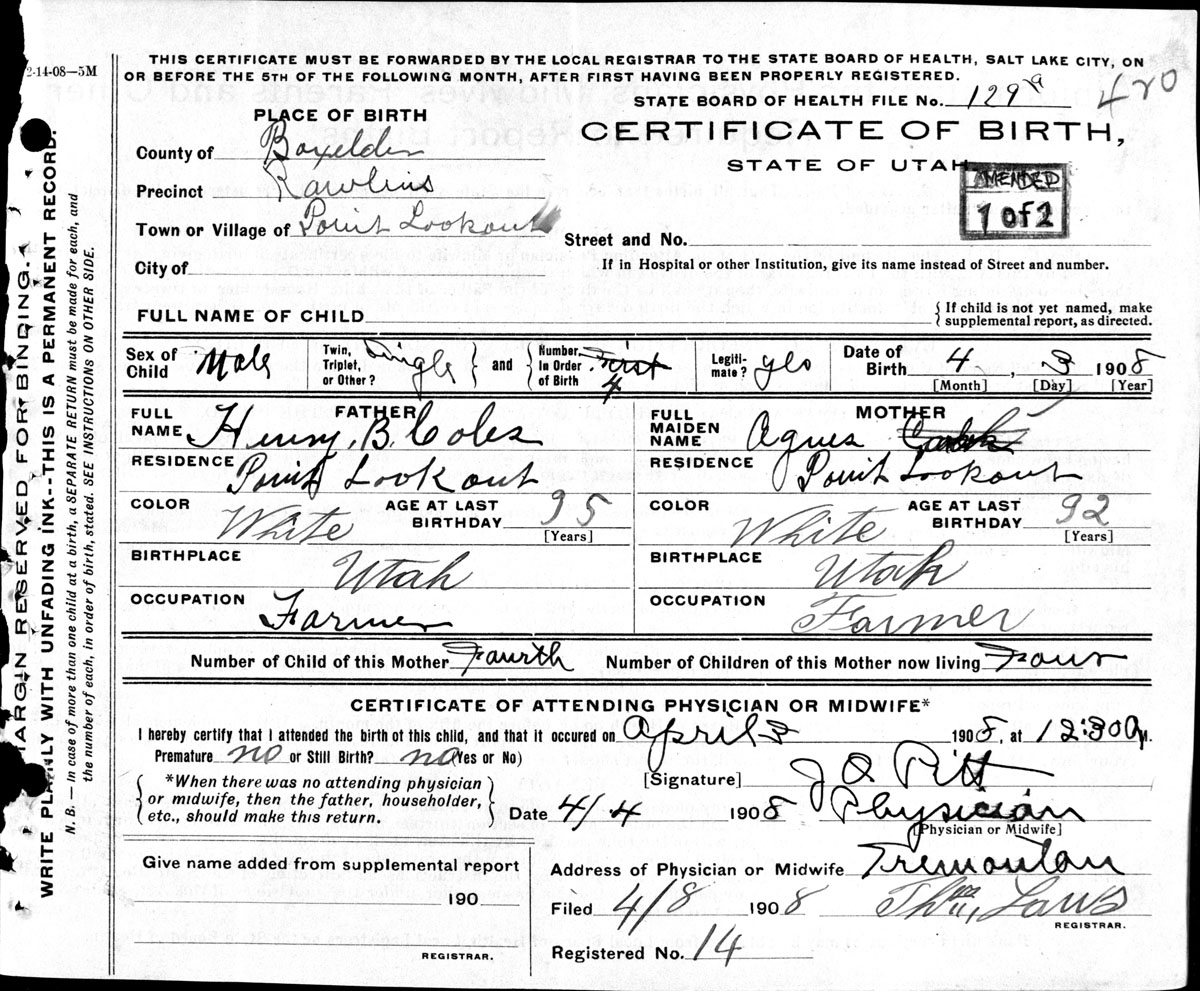 2-14-08—5M
THIS CERTIFICATE MUST BE FORWARDED BY THE LOCAL REGISTRAR TO THE STATE BOARD OF HEALTH, SALT LAKE CITY, ON
OR BEFORE THE 5TH OF THE FOLLOWING MONTH, AFTER FIRST HAVING BEEN PROPERLY REGISTERED.
STATE BOARD OF HEALTH FILE No. 129 a 420
PLACE OF BIRTH
CERTIFICATE OF BIRTH,
STATE OF UTAH
AMENDED
1 of 2
County of Boxelder
Precinct Rawlins
Town or Village of Point Lookout
Street and No.
City of
If in Hospital or other Institution, give its name instead of Street and number.
FULL NAME OF CHILD
{ If child is not yet named, make
supplemental report, as directed.
Sex of Child Male
Twin, Triplet, or Other? Single } and { Number, In Order of Birth First 4
Legiti- mate? yes
Date of Birth 4 , 3 1908
[Month] [Day] [Year]
FATHER
FULL NAME Henry, B. Coles
RESIDENCE Point Lookout
COLOR White
AGE AT LAST BIRTHDAY 35
[Years]
BIRTHPLACE Utah
OCCUPATION Farmer
MOTHER
FULL MAIDEN NAME Agnes
RESIDENCE Point Lookout
COLOR White
AGE AT LAST BIRTHDAY 32
[Years]
BIRTHPLACE Utah
OCCUPATION Farmer
Number of Child of this Mother Fourth Number of Children of this Mother now living Four
CERTIFICATE OF ATTENDING PHYSICIAN OR MIDWIFE*
I hereby certify that I attended the birth of this child, and that it occured on April 3 1908, at 12:30 a M.
Premature no or Still Birth? no (Yes or No)
{ *When there was no attending physician
or midwife, then the father, householder,
etc., should make this return. }
[Signature] J Q Pitt
Date 4/4 1908 Physician
[Physician or Midwife]
Give name added from supplemental report
190
REGISTRAR.
Address of Physician or Midwife Tremonton
Filed 4/8 1908 Thos. Laws
REGISTRAR.
Registered No. 14
MARGIN RESERVED FOR BINDING.
WRITE PLAINLY WITH UNFADING INK--THIS IS A PERMANENT RECORD.
N. B. — In case of more than one child at a birth, a SEPARATE RETURN must be made for each, and
the number of each, in order of birth, stated. SEE INSTRUCTIONS ON OTHER SIDE.